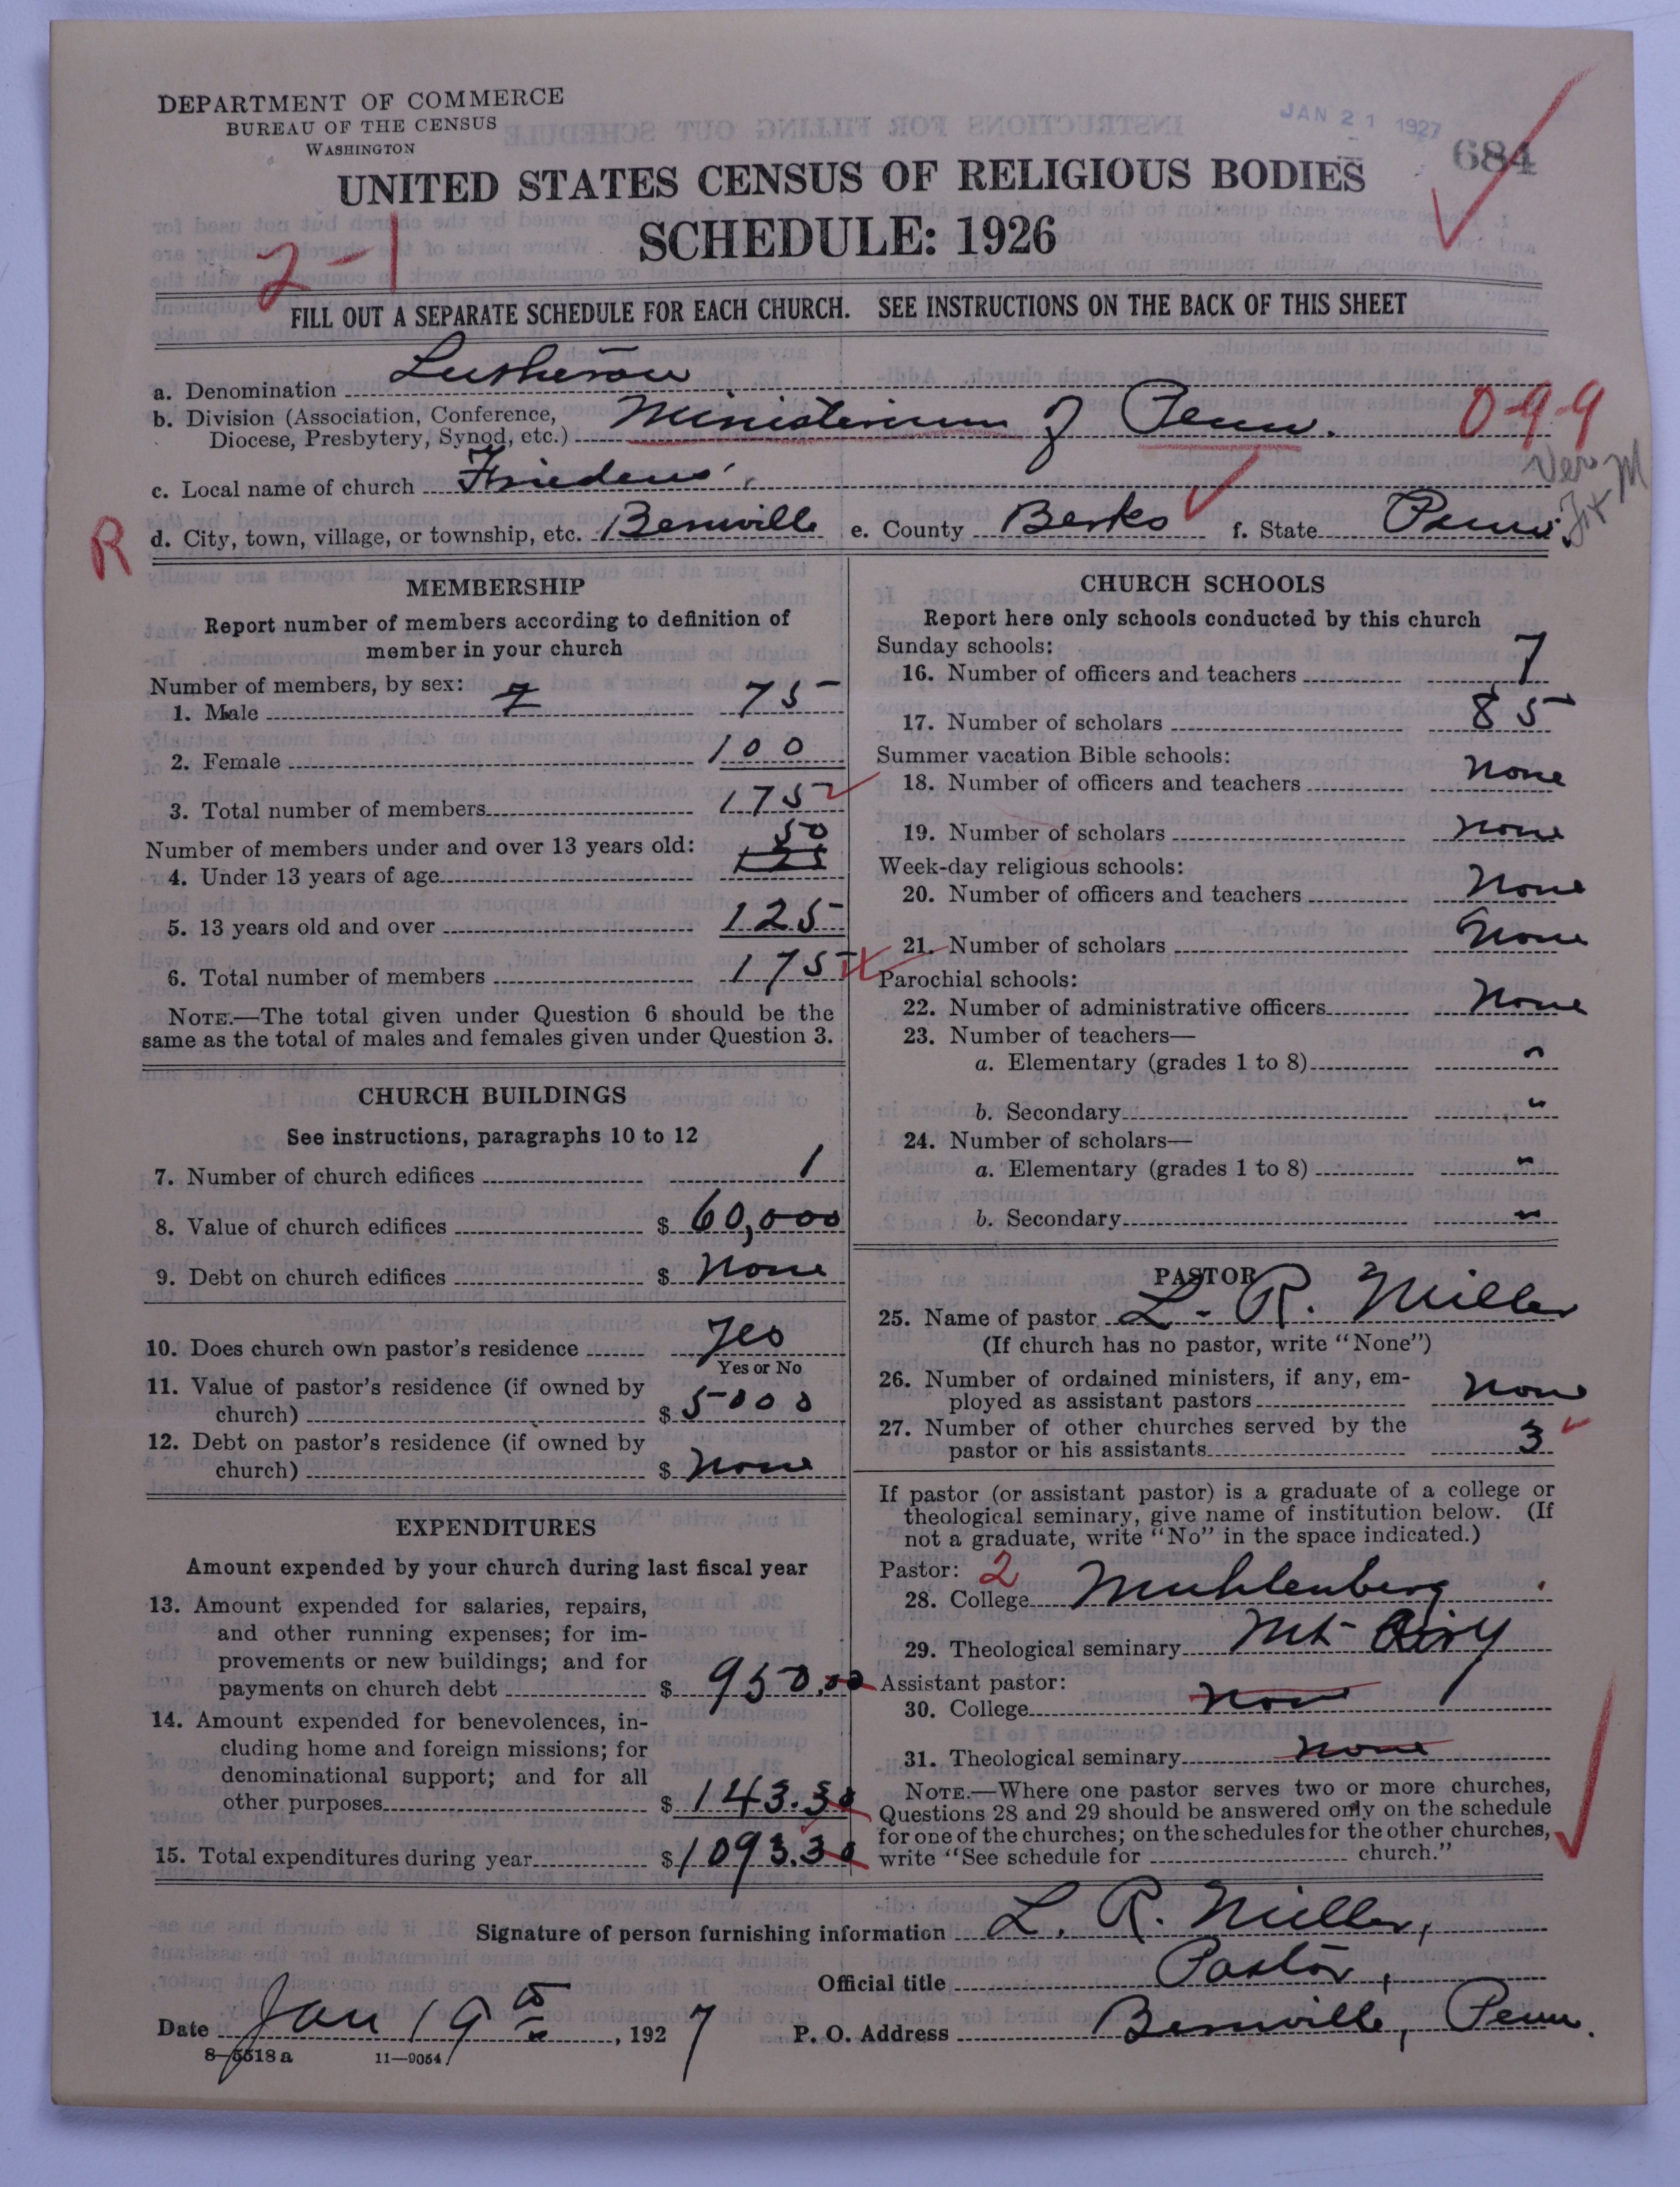 DEPARTMENT OF COMMERCE
BUREAU OF THE CENSUS
WASHINGTON
JAN 21 1927
684
UNITED STATES CENSUS OF RELIGIOUS BODIES
SCHEDULE: 1926
2-1
FILL OUT A SEPARATE SCHEDULE FOR EACH CHURCH. SEE INSTRUCTIONS ON THE BACK OF THIS SHEET
a. Denomination Lutheran
b. Division (Association, Conference, Diocese, Presbytery, Synod, etc.) Ministerium of Penn. 0-9-9
c. Local name of church Friedens'
Ver M
R
d. City, town, village, or township, etc. Bernville e. County Berks f. State Penn.
MEMBERSHIP
Report number of members according to definition of
member in your church
Number of members, by sex:
1. Male 75
2. Female 100
3. Total number of members 175
Number of members under and over 13 years old:
4. Under 13 years of age 50
5. 13 years old and over 125
6. Total number of members 175
NOTE.—The total given under Question 6 should be the
same as the total of males and females given under Question 3.
CHURCH BUILDINGS
See instructions, paragraphs 10 to 12
7. Number of church edifices 1
8. Value of church edifices $ 60,000
9. Debt on church edifices $ None
10. Does church own pastor's residence Yes
Yes or No
11. Value of pastor's residence (if owned by
church) $ 5000
12. Debt on pastor's residence (if owned by
church) $ None
EXPENDITURES
Amount expended by your church during last fiscal year
13. Amount expended for salaries, repairs,
and other running expenses; for im-
provements or new buildings; and for
payments on church debt $ 950.00
14. Amount expended for benevolences, in-
cluding home and foreign missions; for
denominational support; and for all
other purposes $ 143.30
15. Total expenditures during year $ 1093.30
CHURCH SCHOOLS
Report here only schools conducted by this church
Sunday schools:
16. Number of officers and teachers 7
17. Number of scholars 85
Summer vacation Bible schools:
18. Number of officers and teachers None
19. Number of scholars None
Week-day religious schools:
20. Number of officers and teachers None
21. Number of scholars None
Parochial schools:
22. Number of administrative officers None
23. Number of teachers—
a. Elementary (grades 1 to 8) "
b. Secondary "
24. Number of scholars—
a. Elementary (grades 1 to 8) "
b. Secondary "
PASTOR
25. Name of pastor L. R. Miller
(If church has no pastor, write "None")
26. Number of ordained ministers, if any, em-
ployed as assistant pastors None
27. Number of other churches served by the
pastor or his assistants 3
If pastor (or assistant pastor) is a graduate of a college or
theological seminary, give name of institution below. (If
not a graduate, write "No" in the space indicated.)
Pastor: 2
28. College Muhlenberg
29. Theological seminary Mt Airy
Assistant pastor:
30. College None
31. Theological seminary None
NOTE.—Where one pastor serves two or more churches,
Questions 28 and 29 should be answered only on the schedule
for one of the churches; on the schedules for the other churches,
write "See schedule for church."
Signature of person furnishing information L. R. Miller,
Official title Pastor,
Date Jan 19th, 1927 P. O. Address Bernville, Penn.
8-5518a 11-9054